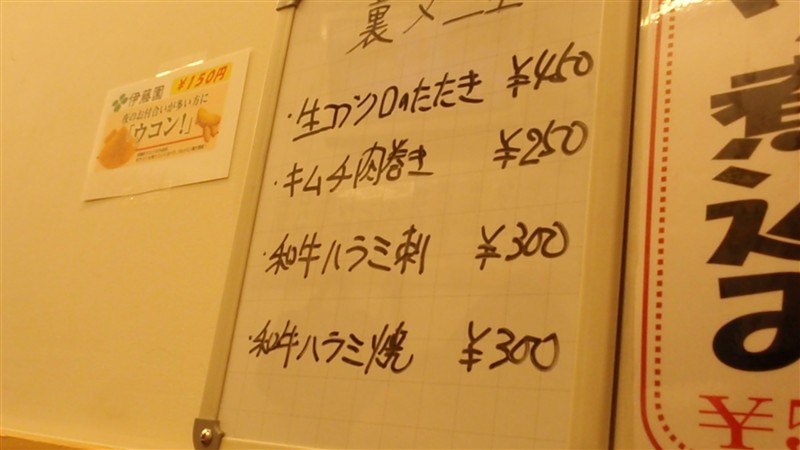 伊藤園
¥150円
夜のお付合いが多い方に
「ウコン!」
裏メニュー
・生コブクロのたたき ¥450
・キムチ肉巻き ¥250
・和牛ハラミ刺 ¥300
・和牛ハラミ焼 ¥300
煮込み
¥5